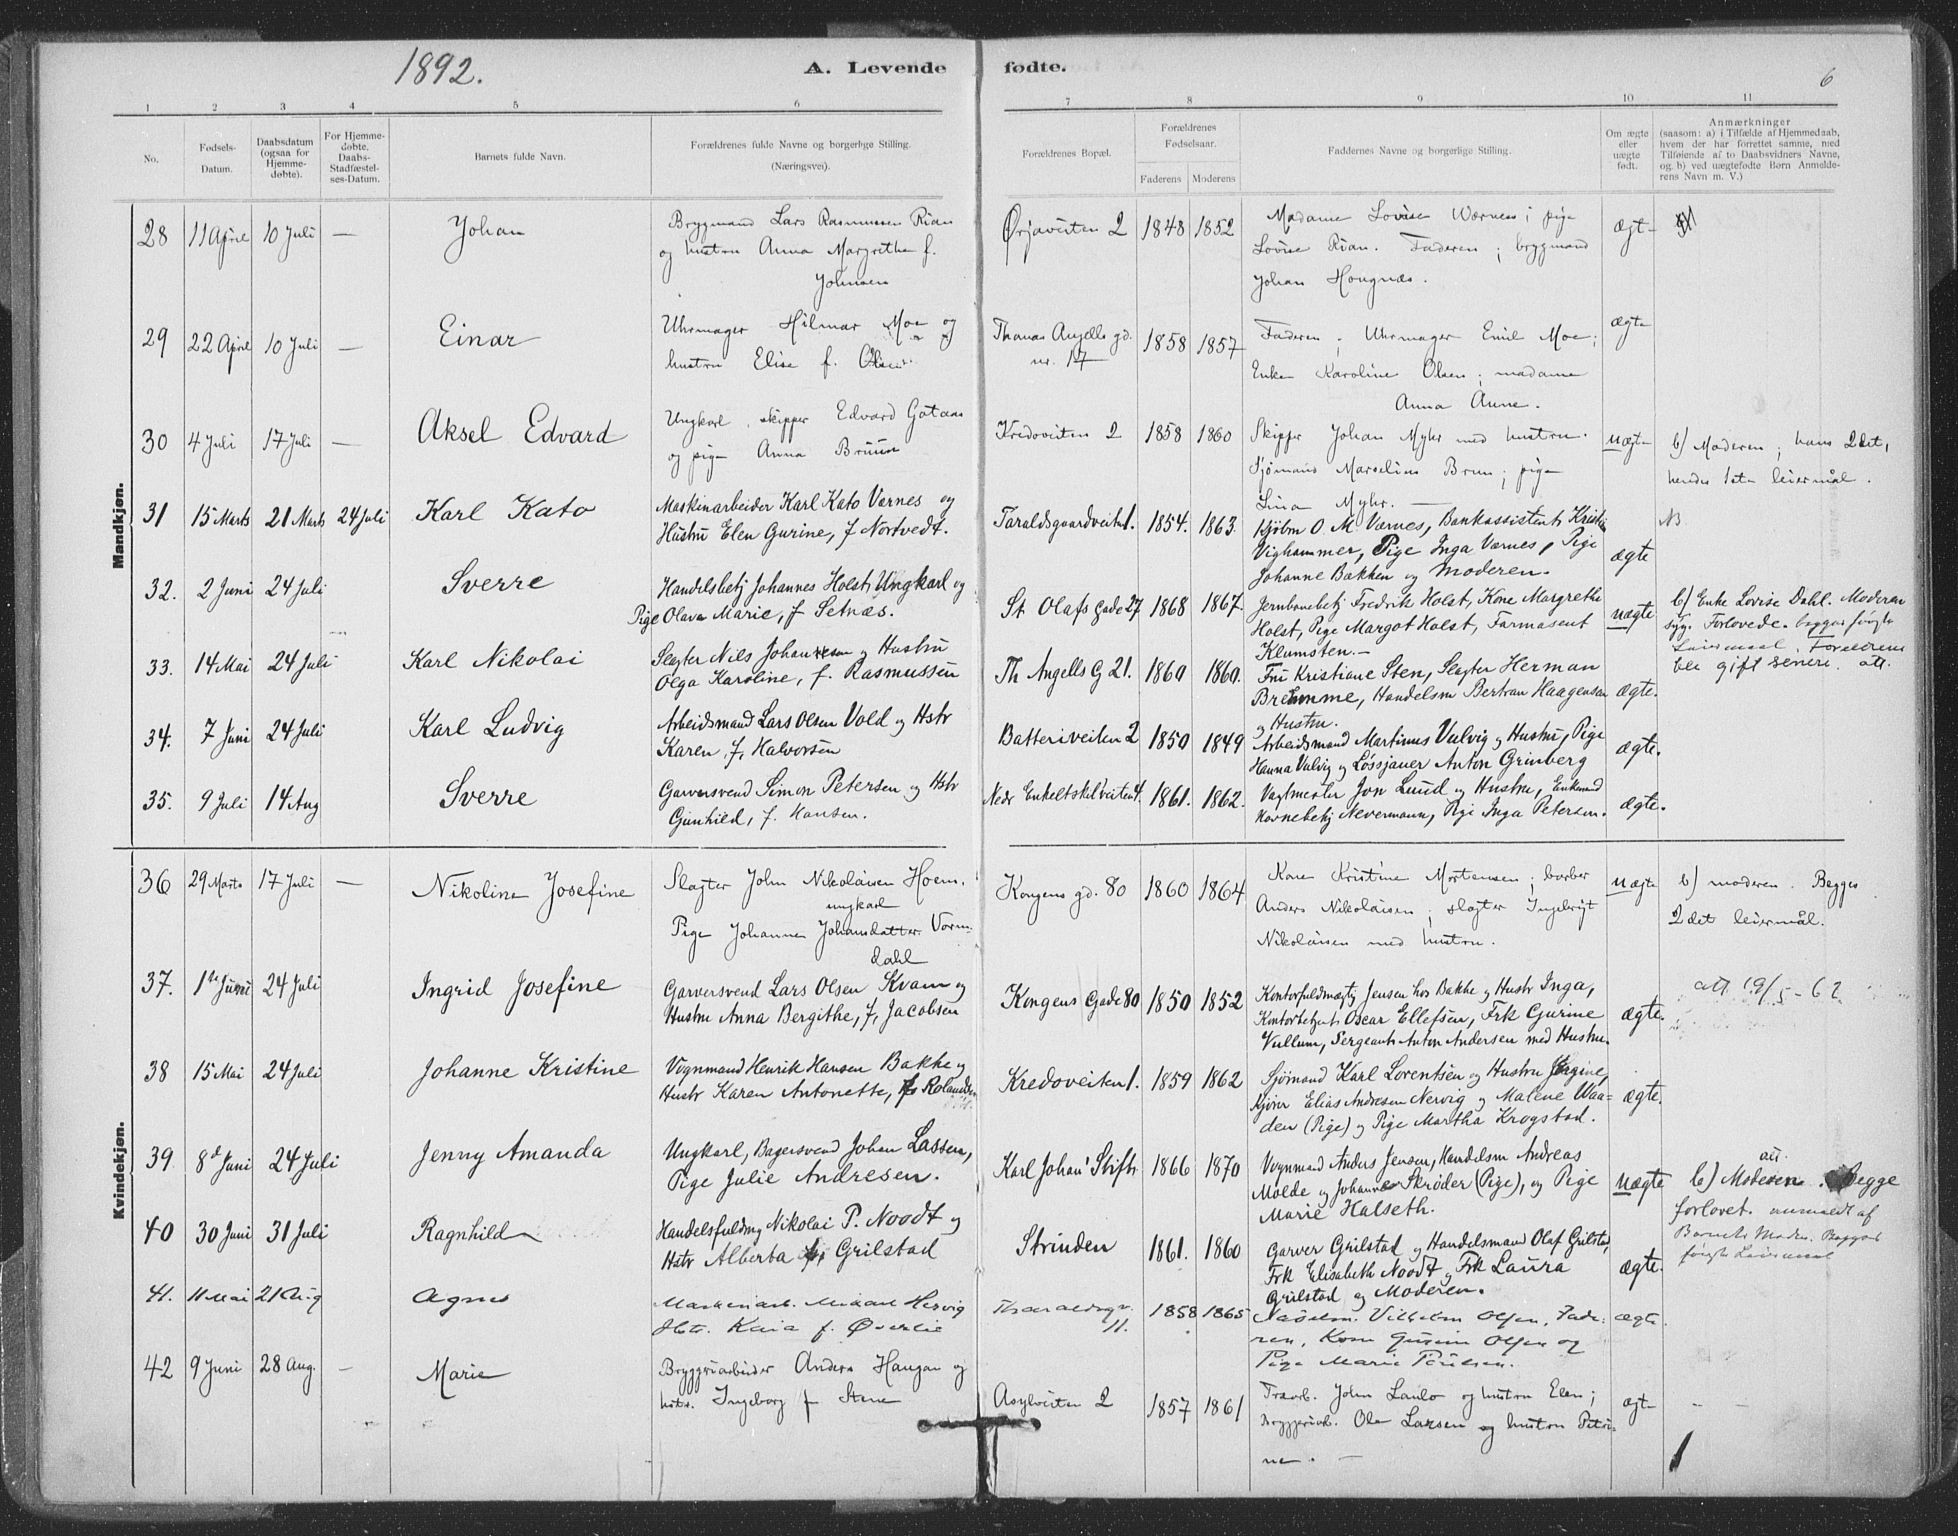 1892.
A. Levende fødte.
6
1 2 3 4 5 6 7 8 9 10 11
No.
Fødsels-Datum.
Daabsdatum (ogsaa for Hjemme-døbte).
For Hjemme-døbte. Daabs-Stadfæstel-ses-Datum.
Barnets fulde Navn.
Forældrenes fulde Navne og borgerlige Stilling.
(Næringsvei).
Forældrenes Bopæl.
Forældrenes Fødselsaar.
Faderens Moderens
Faddernes Navne og borgerlige Stilling.
Om ægte eller uægte født.
Anmærkninger
(saasom: a) i Tilfælde af Hjemmedaab,
hvem der har forrettet samme, med
Tilføiende af to Daabsvidners Navne,
og b) ved uægtefødte Børn Anmelde-
rens Navn m. V.)
Mandkjøn.
28 11 April 10 Juli — Johan
Brygmand Lars Rasmussen Rian
og hustru Anna Margrethe f.
Johnsen
Ørjaveiten 2 1848 1852
Madame Lovise Værness; pige
Lovise Rian. Faderen; brygmand
Johan Hougnæs.
ægt-
29 22 April 10 Juli — Einar
Uhrmager Hilmar Moe og
hustru Elise f. Olsen
Thomas Angells gd.
nr. 17
1858 1857
Faderen; Uhrmager Emil Moe;
Enke Karoline Olsen; madame
Anna Aune.
ægte
30 4 Juli 17 Juli — Aksel Edvard
Ungkarl, skipper Edvard Gataas
og pige Anna Bruun
Kredoveiten 2 1858 1860
Skipper Johan Myhr med hustru.
Sjømand Marselius Brun; pige
Lina Myhr. —
uægte
b) Moderen; hans 2det,
hendes 1ste leiermål.
31 15 Marts 21 Marts 24 Juli Karl Kato
Maskinarbeider Karl Kato Værnes og
Hustru Elen Gurine, f Nortvedt.
Taraldsgaardveiten 1. 1854. 1863.
Kjøbm O M Værnes, Bankassistent Kristian
Vighammer, Pige Inga Værnes, Pige
Johanne Bakken og Moderen.
ægte
32. 2 Juni 24 Juli Sverre
Handelsbetj Johannes Holst, Ungkarl og
Pige Olava Marie, f Setnæs.
St Olafs gade 27 1868 1867.
Jernbanebetj Fredrik Holst, Kone Margrethe
Holst, Pige Margot Holst, Farmaseut
Klumsten.—
uægte
b) Enke Lovise Dahl. Moderen
syg. Forlovede. begges første
Leiermaal. Forældrene
ble gift senere. att.
33. 14 Mai 24 Juli Karl Nikolai
Slagter Nils Johansen og Hustru
Olga Karoline, f. Rasmussen
Th Angells G 21. 1860 1860.
Fru Kristiane Sten, Slagter Herman
Bremme, Handelsm Bertran Haagensen
og Hustru.
ægte.
34. 7 Juni 24 Juli Karl Ludvig
Arbeidsmand Lars Olsen Vold og Hstr
Karen, f, Halvorsen
Batteriveiten 2 1850 1849
Arbeidsmand Martinus Vulvig og Hustru, Pige
Hanna Vulvig og Løssjauer Anton Grinberg
ægte.
35. 9 Juli 14 Aug Sverre
Garversvend Simon Petersen og Hstr
Gunhild, f. Hansen.
Nedr Enkeltskilveiten 4. 1861. 1862.
Vagtmester Jon Lund og Hustru, Enkemand
Havnebetj Nevermann, Pige Inga Petersen.
ægte.
Kvindekjøn.
36 29 Marts 17 Juli — Nikoline Josefine
Slagter John Nikolaisen Hoem,
ungkarl
Pige Johanna Johansdatter Vorm-
dahl
Kongens gd. 80 1860 1864
Kone Kristine Mortensen; barber
Anders Nikolaisen; slagter Ingebrigt
Nikolaisen med hustru.
uægte
b) moderen. Begges
2det leiermål.
37. 1ste Juni 24 Juli Ingrid Josefine
Garversvend Lars Olsen Kvam og
Hustru Anna Bergithe, f, Jacobsen
Kongens Gade 80 1850 1852
Kontorfuldmægtig Jensen hos Bakke og Hustr Inga,
Kontorbetjent Oscar Ellefsen, Frk Gurine
Vullum, Sergeant Anton Andersen med Hustru.
ægte.
att 19/5-62
38 15 Mai 24 Juli Johanne Kristine
Vognmand Henrik Hansen Bakke og
Hustr Karen Antonette, f Rolandsen
Kredoveiten 1. 1859 1862
Sjømand Karl Lorentsen og Hustru Jørgine,
Kjører Elias Andresen Nervig og Malene Waa-
den (Pige) og Pige Martha Krogstad.
ægte.
39 8d Juni 24 Juli Jenny Amanda
Ungkarl, Bagersvend Johan Lassen,
Pige Julie Andresen.
Karl Johan' Stift. 1866 1870
Vognmand Anders Jensen, Handelsm Andreas
Molde og Johanne Skrøder (Pige), og Pige
Marie Halseth.
uægte
att.
b) Moderen. Begge
forlovet. anmeldt af
Barnets Moder. Begges
første Leiermaal
40 30 Juni 31 Juli Ragnhild
Handelsfuldmg Nikolai P. Noodt og
Hstr Alberta f, Grilstad
Strinden 1861. 1860
Garver Grilstad og Handelsmand Olaf Grilstad,
Frk Elisabeth Noodt og Frk Laura
Grilstad og Moderen.
ægte.
41. 11 Mai 21 Aug Agnes
Maskinarb. Mikael Hervig
Hstr. Kaia f. Øverlie
Tharaldsgv.
11.
1858 1865
Vilhelm Olsen, Fade-
ren, Kone Gurine Olsen og
Pige Marie Poulsen.
ægte
42 9 Juni 28 Aug. — Marie
Bryggeriarbeider Anders Haugan og
hstr. Ingeborg f Stene
Asylveiten 2 1857 1861
Travb. John Lanlo og hustru Elen;
Bryggeriarb. Ole Larsen og hustru Petri-
ne. —
ægt- — —